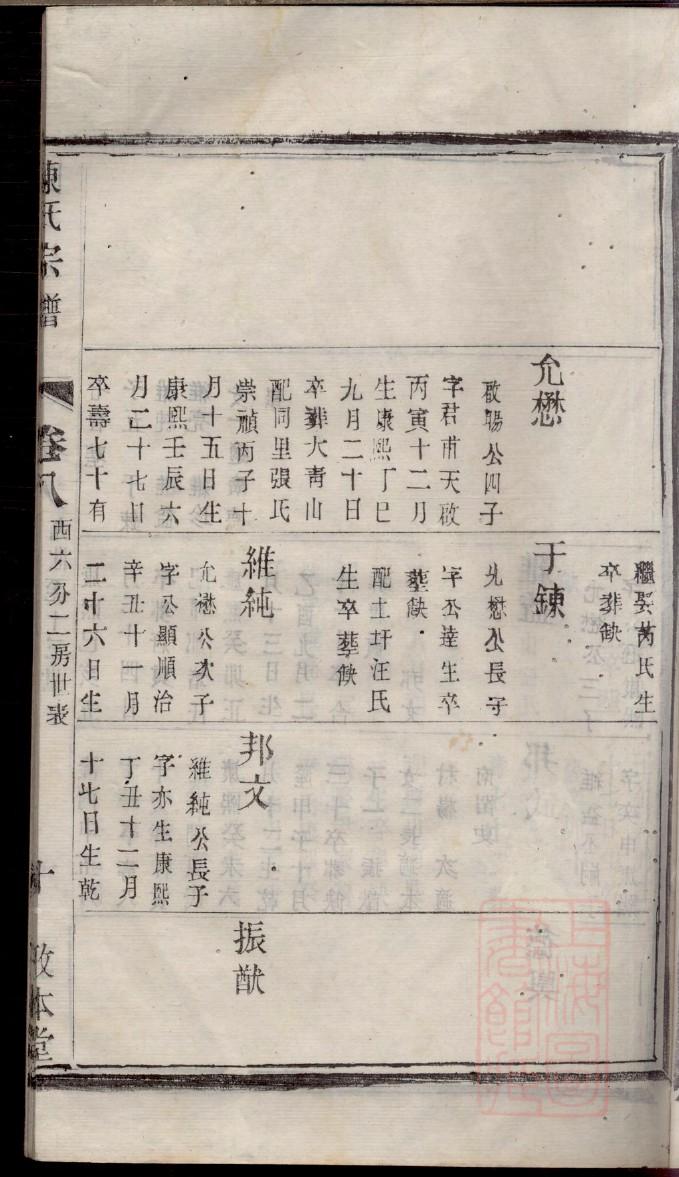 陳氏宗譜
卷八
西六分二房世表
敦本堂
允懋
啟暘公四子
字君甫天啟
丙寅十二月
生康熙丁巳
九月二十日
卒葬大青山
配同里張氏
崇禎丙子十
月十五日生
康熙壬辰六
月二十七日
卒壽七十有
繼娶芮氏生
卒葬缺
于鍊
允懋公長子
字公達生卒
葬缺
配土圩汪氏
生卒葬缺
維純
允懋公次子
字公顯順治
辛丑十一月
二十六日生
邦文
維純公長子
字亦生康熙
丁丑十二月
十七日生乾
振猷